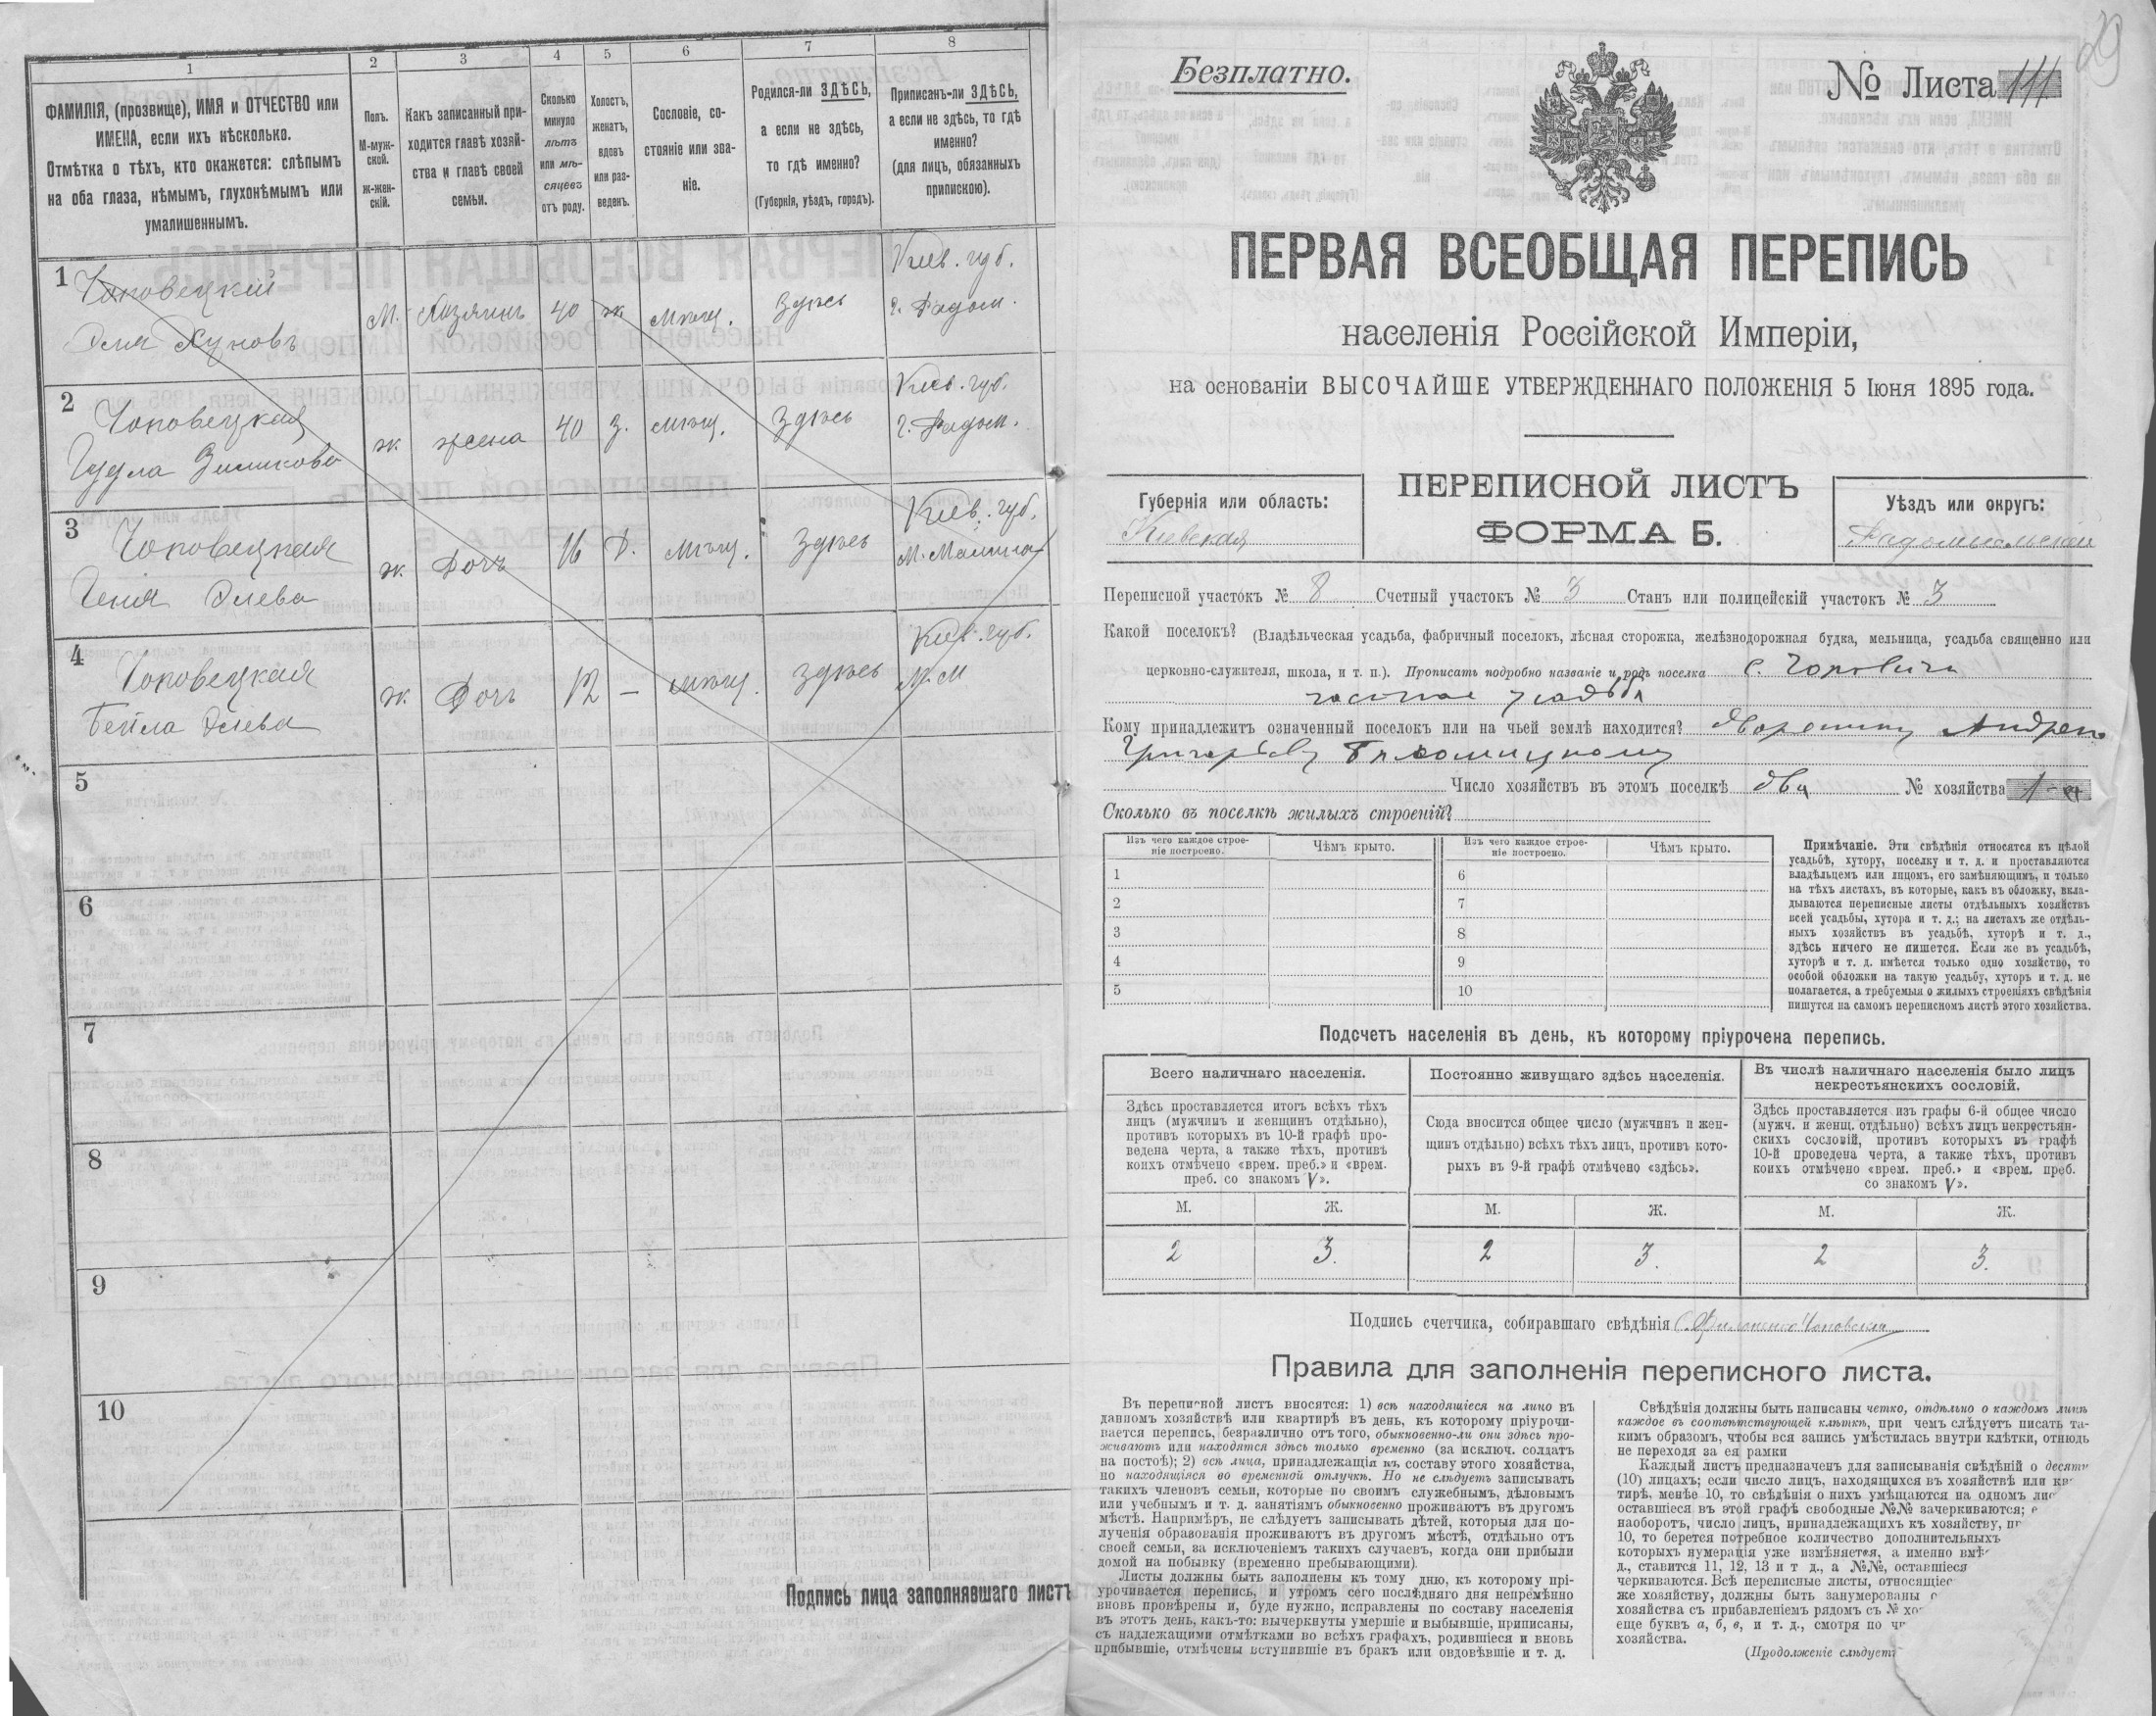 1
2
3
4
5
6
7
8
ФАМИЛІЯ, (прозвище), ИМЯ и ОТЧЕСТВО или
ИМЕНА, если ихъ нѣсколько.
Отмѣтка о тѣхъ, кто окажется: слѣпымъ
на оба глаза, нѣмымъ, глухонѣмымъ или
умалишеннымъ.
Полъ.
М-муж-
ской.
ж-жен-
скій.
Какъ записанный при-
ходится главѣ хозяй-
ства и главѣ своей
семьи.
Сколько
минуло
лѣтъ
или мѣ-
сяцевъ
отъ роду.
Холостъ,
женатъ,
вдовъ
или раз-
веденъ.
Сословіе, со-
стояніе или зва-
ніе.
Родился-ли ЗДѢСЬ,
а если не здѣсь,
то гдѣ именно?
(Губернія, уѣздъ, городъ).
Приписанъ-ли ЗДѢСЬ,
а если не здѣсь, то гдѣ
именно?
(для лицъ, обязанныхъ
припискою).
1
Чоповецкій
М. Хозяинъ 40 ж мѣщ. Здѣсь
Кіев. губ.
г. Радом.
2 Чоповецкая
ж. жена 40 З. мѣщ. Здѣсь
Кіев. губ.
г. Радом.
3 Чоповецкая
ж. Дочь 16 Д. мѣщ. Здѣсь
Кіев. губ.
М. Малина
4 Чоповецкая
Бейла
ж. Дочь 12 — мѣщ. здѣсь
Кіев. губ.
М. М
5
6
7
8
9
10
Подпись лица заполнявшаго листъ
Безплатно.
№ Листа 111
29
ПЕРВАЯ ВСЕОБЩАЯ ПЕРЕПИСЬ
населенія Россійской Имперіи,
на основаніи ВЫСОЧАЙШЕ УТВЕРЖДЕННАГО ПОЛОЖЕНІЯ 5 Іюня 1895 года.
Губернія или область:
Кіевская
ПЕРЕПИСНОЙ ЛИСТЪ
ФОРМА Б.
Уѣздъ или округъ:
Радомысльскій
Переписной участокъ № 8 Счетный участокъ № 3 Станъ или полицейскій участокъ № 3
Какой поселокъ? (Владѣльческая усадьба, фабричный поселокъ, лѣсная сторожка, желѣзнодорожная будка, мельница, усадьба священно или
церковно-служителя, школа, и т. п.). Прописать подробно названіе и родъ поселка с. Чоповичи
частная усадьба
Кому принадлежитъ означенный поселокъ или на чьей землѣ находится? дворянину Андрею
Григорьеву
Число хозяйствъ въ этомъ поселкѣ два № хозяйства 1-й
Сколько въ поселкѣ жилыхъ строеній?
Изъ чего каждое строе-
ніе построено.
Чѣмъ крыто.
Изъ чего каждое строе-
ніе построено.
Чѣмъ крыто.
1 6
2 7
3 8
4 9
5 10
Примѣчаніе. Эти свѣдѣнія относятся къ цѣлой
усадьбѣ, хутору, поселку и т. д. и проставляются
владѣльцемъ или лицомъ, его замѣняющимъ, и только
на тѣхъ листахъ, въ которые, какъ въ обложку, вкла-
дываются переписные листы отдѣльныхъ хозяйствъ
всей усадьбы, хутора и т. д.; на листахъ же отдѣль-
ныхъ хозяйствъ въ усадьбѣ, хуторѣ и т. д.,
здѣсь ничего не пишется. Если же въ усадьбѣ,
хуторѣ и т. д. имѣется только одно хозяйство, то
особой обложки на такую усадьбу, хуторъ и т. д. не
полагается, а требуемыя о жилыхъ строеніяхъ свѣдѣнія
пишутся на самомъ переписномъ листѣ этого хозяйства.
Подсчетъ населенія въ день, къ которому пріурочена перепись.
Всего наличнаго населенія.
Здѣсь проставляется итогъ всѣхъ тѣхъ
лицъ (мужчинъ и женщинъ отдѣльно),
противъ которыхъ въ 10-й графѣ про-
ведена черта, а также тѣхъ, противъ
коихъ отмѣчено «врем. преб.» и «врем.
преб. со знакомъ V».
Постоянно живущаго здѣсь населенія.
Сюда вносится общее число (мужчинъ и жен-
щинъ отдѣльно) всѣхъ тѣхъ лицъ, противъ кото-
рыхъ въ 9-й графѣ отмѣчено «здѣсь».
Въ числѣ наличнаго населенія было лицъ
некрестьянскихъ сословій.
Здѣсь проставляется изъ графы 6-й общее число
(мужч. и женщ. отдѣльно) всѣхъ лицъ некрестьян-
скихъ сословій, противъ которыхъ въ графѣ
10-й проведена черта, а также тѣхъ, противъ
коихъ отмѣчено «врем. преб.» и «врем. преб.
со знакомъ V».
М. Ж. М. Ж. М. Ж.
2 3. 2 3. 2 3.
Подпись счетчика, собиравшаго свѣдѣнія
Правила для заполненія переписного листа.
Въ переписной листъ вносятся: 1) всѣ находящіеся на лицо въ
данномъ хозяйствѣ или квартирѣ въ день, къ которому пріурочи-
вается перепись, безразлично отъ того, обыкновенно-ли они здѣсь про-
живаютъ или находятся здѣсь только временно (за исключ. солдатъ
на постоѣ); 2) всѣ лица, принадлежащія къ составу этого хозяйства,
но находящіяся во временной отлучкѣ. Но не слѣдуетъ записывать
такихъ членовъ семьи, которые по своимъ служебнымъ, дѣловымъ
или учебнымъ и т. д. занятіямъ обыкновенно проживаютъ въ другомъ
мѣстѣ. Напримѣръ, не слѣдуетъ записывать дѣтей, которыя для по-
лученія образованія проживаютъ въ другомъ мѣстѣ, отдѣльно отъ
своей семьи, за исключеніемъ такихъ случаевъ, когда они прибыли
домой на побывку (временно пребывающими).
Листы должны быть заполнены къ тому дню, къ которому прі-
урочивается перепись, и утромъ сего послѣдняго дня непремѣнно
вновь провѣрены и, буде нужно, исправлены по составу населенія
въ этотъ день, какъ-то: вычеркнуты умершіе и выбывшіе, приписаны,
съ надлежащими отмѣтками во всѣхъ графахъ, родившіеся и вновь
прибывшіе, отмѣчены вступившіе въ бракъ или овдовѣвшіе и т. д.
Свѣдѣнія должны быть написаны четко, отдѣльно о каждомъ лицѣ
каждое въ соотвѣтствующей клѣткѣ, при чемъ слѣдуетъ писать та-
кимъ образомъ, чтобы вся запись умѣстилась внутри клѣтки, отнюдь
не переходя за ея рамки
Каждый листъ предназначенъ для записыванія свѣдѣній о десяти
(10) лицахъ; если число лицъ, находящихся въ хозяйствѣ или ква
тирѣ, менѣе 10, то свѣдѣнія о нихъ умѣщаются на одномъ лис
оставшіеся въ этой графѣ свободные №№ зачеркиваются; е
наоборотъ, число лицъ, принадлежащихъ къ хозяйству, пр
10, то берется потребное количество дополнительныхъ
которыхъ нумерація уже измѣняется, а именно вмѣ
д., ставится 11, 12, 13 и т д., а №№, оставшіеся
черкиваются. Всѣ переписные листы, относящіес
же хозяйству, должны быть занумерованы о
хозяйства съ прибавленіемъ рядомъ съ № хо
еще буквъ а, б, в, и т. д., смотря по чи
хозяйства.
(Продолженіе слѣдует